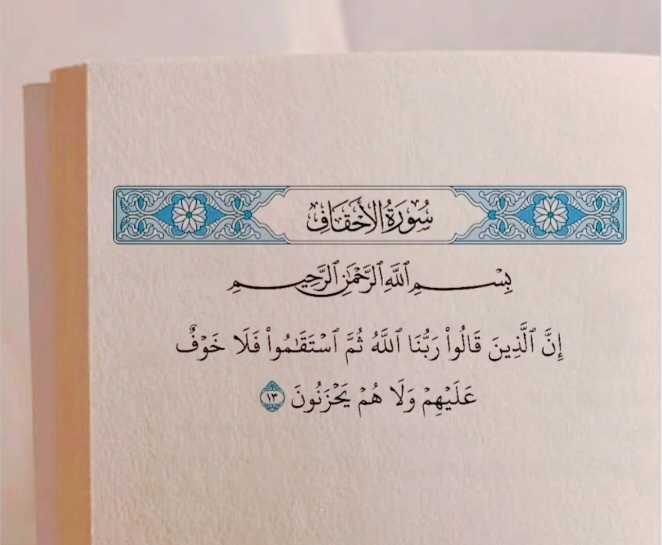 سُورَةُ الأَحْقَافِ
بِسْمِ ٱللَّهِ ٱلرَّحْمَٰنِ ٱلرَّحِيمِ
إِنَّ ٱلَّذِينَ قَالُوا۟ رَبُّنَا ٱللَّهُ ثُمَّ ٱسْتَقَٰمُوا۟ فَلَا خَوْفٌ
عَلَيْهِمْ وَلَا هُمْ يَحْزَنُونَ ١٣